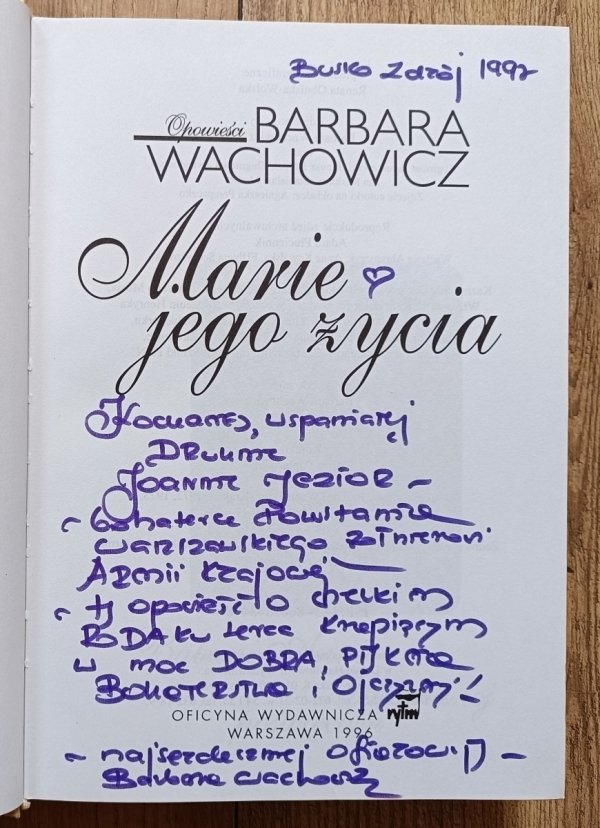 Busko Zdrój 1997
Opowieści BARBARA
WACHOWICZ
Marie
jego życia
Kochanej, wspaniałej
Druhnie
Joannie Jezior –
– bohaterce Powstania
Warszawskiego żołnierzowi
Armii Krajowej –
– tę opowieść o wielkim
RODAKU serce krzepiącym
w moc DOBRA, PIĘKNA
BOHATERSTWA i Ojczyzny!
OFICYNA WYDAWNICZA rytm
WARSZAWA 1996
– najserdeczniej ofiarowuję –
Barbara Wachowicz